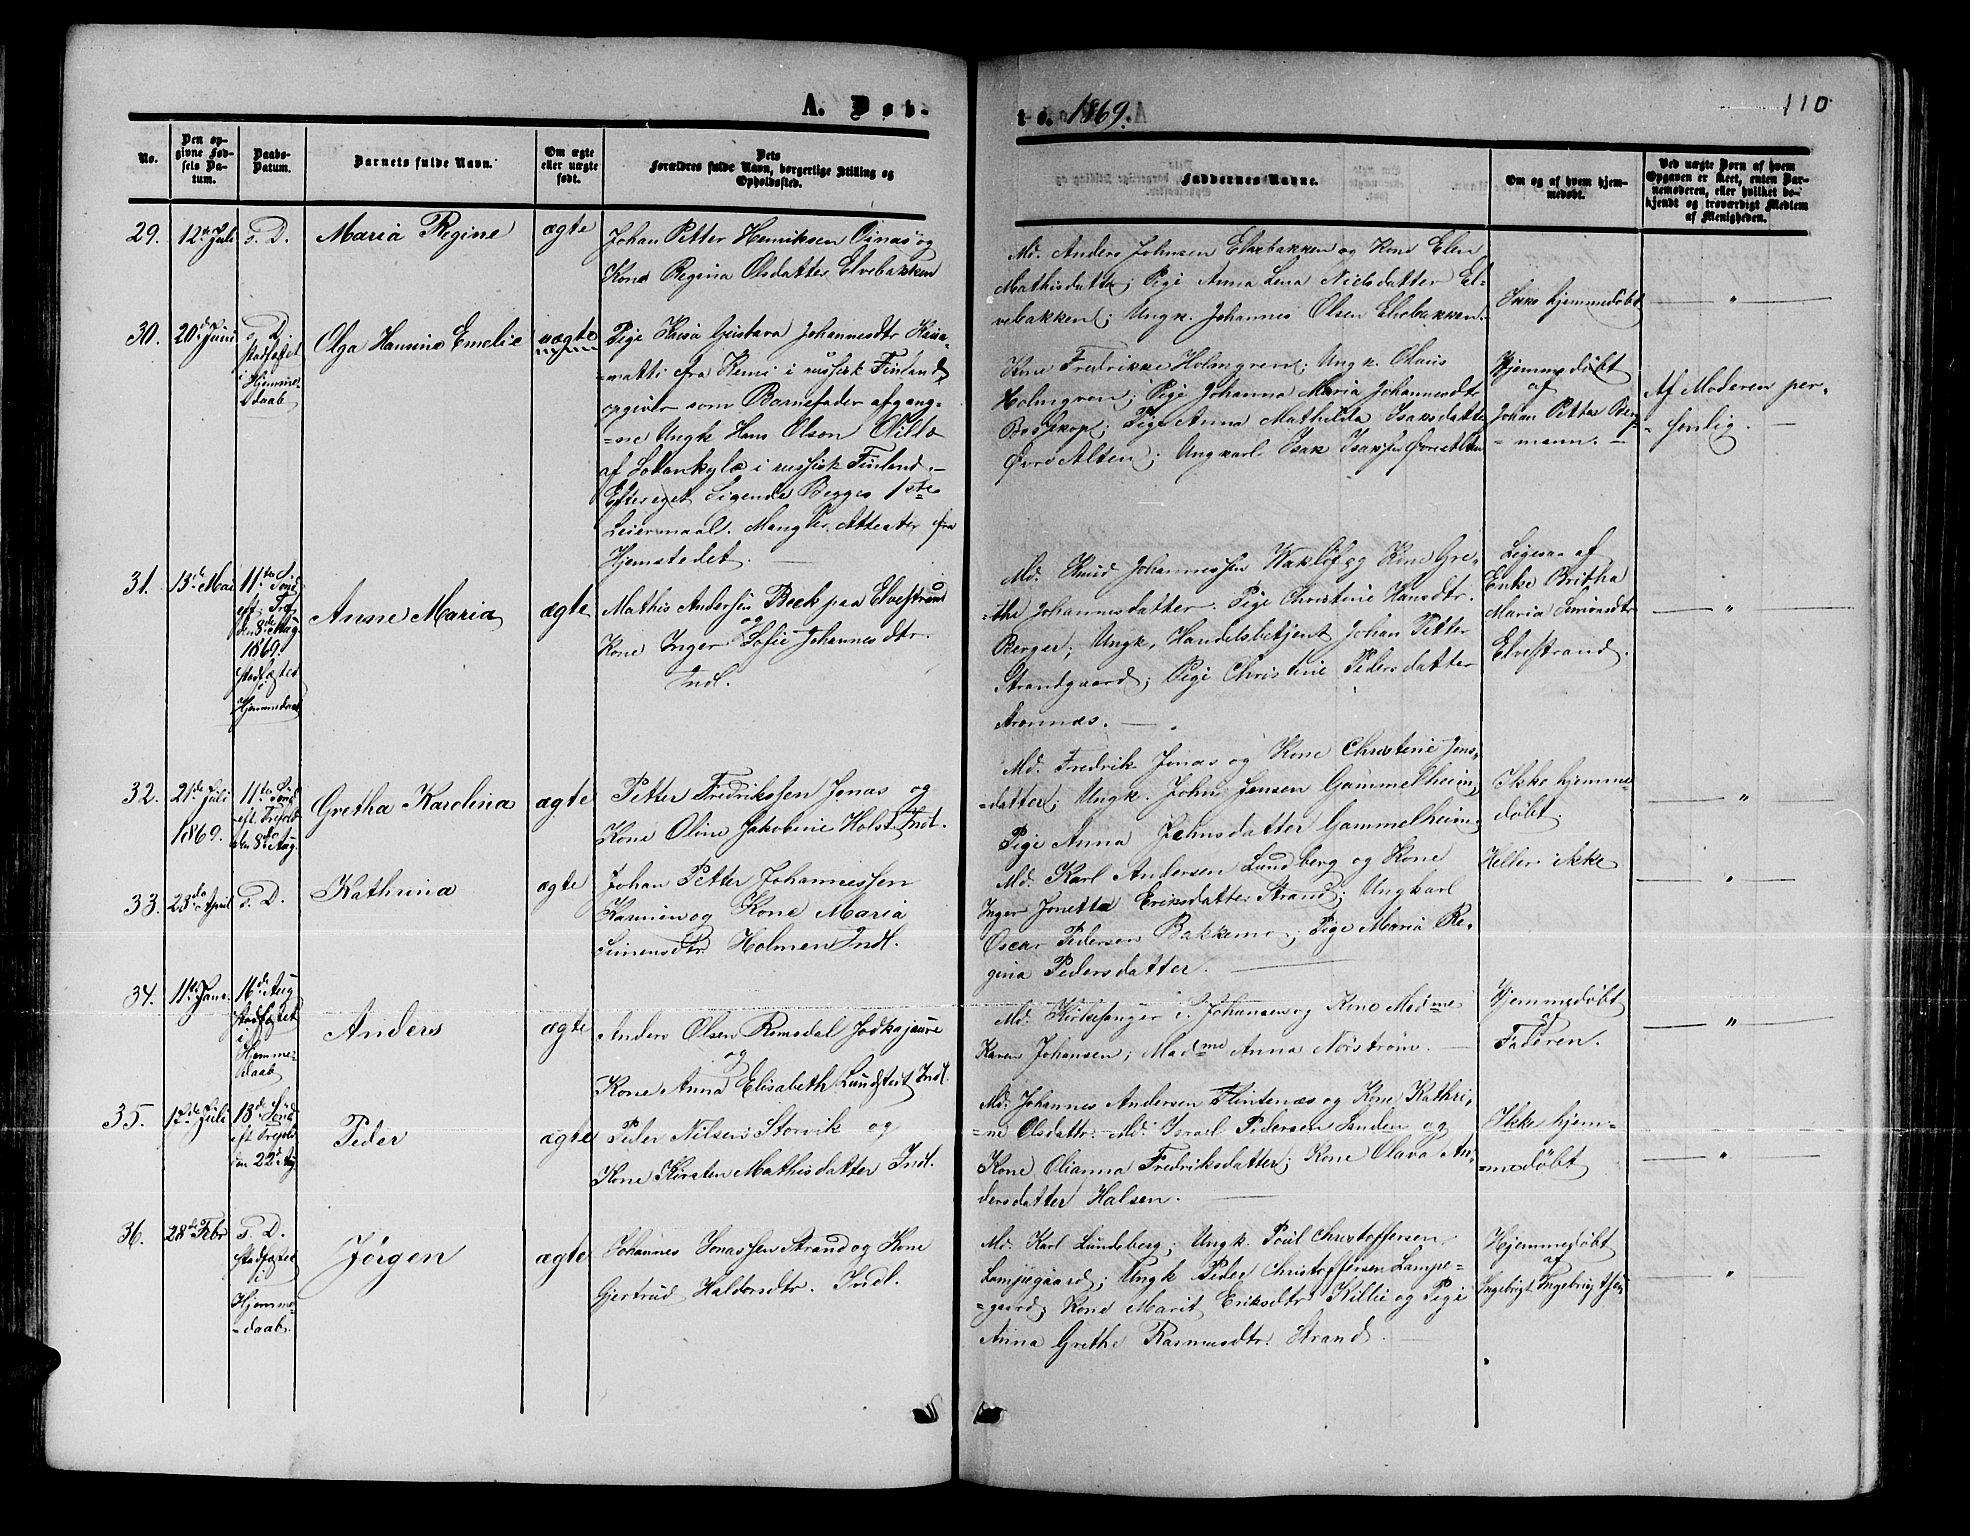 A. Døb-
te. 1869.
110
No.
Den op-
givne Fød-
sels Da-
tum.
Daabs-
Datum.
Barnets fulde Navn.
Om ægte
eller uægte
født.
Dets
Forældres fulde Navn, borgerlige Stilling og
Opholdssted.
Faddernes Navne.
Om og af hvem hjem-
medøbt.
Ved uægte Børn af hvem
Opgaven er skeet, enten Bar-
nemoderen, eller hvilket be-
kjendt og troværdigt Medlem
af Menigheden.
29.
12te Juli
s. D.
Maria Regine
ægte
Johan Petter Henriksen Oinas og
Kone Regina Olsdatter Elvebakken
Md. Anders Johnsen Elvebakken og Kone Elen
Mathisdatter; Pige Anna Lena Nielsdatter El-
vebakken; Ungk. Johannes Olsen Elvebakken.
Ikke hjemmedøbt
"
30.
20de Juni
s. D.
stadfæstet
i Hjemme-
daab
Olga Hansine Emelie
uægte
Pige Kaisa Gustava Johannesdtr
=matti fra Kemi i russisk Finland,
opgiver som Barnefader afgang-
=ne Ungk Hans Olson
af i russisk Finland.-
Efter eget Sigende Begges 1ste
Leiermaal. Mangler Attester fra
Hjemstedet.
Kone Fredrikke Holmgren; Ungk. Olaus
Holmgren; Pige Johanna Maria Johannesdtr
Bossekop; Pige Anna Mathilda Isaksdatter
Øvre Alten; Ungkarl Isak Isaksen Øvre Alten
Hjemmedøbt
af
Johan Petter Berg-
=mann.-
Af Moderen per-
sonlig.
31.
13de Mai
11te Sønd
eft. Tref
den 8de Aug
1869.
stadfæstet
i
Hjemmedaab
Anne Maria
ægte
Mathis Andersen Beck paa Elvestrand
og
Kone Inger Sofie Johannesdtr.
Indl.
Md. Knud Johannessen Wakløf og Kone Gre-
=the Johannesdatter. Pige Christine Hansdtr.
Berger; Ungk, Handelsbetjent Johan Petter
Strandgaard; Pige Christine Pedersdatter
Aronnæs.
Ligesaa af
Enke Britha
Maria Simonsdtr
Elvestrand.
"
32.
21de Juli
1869.
11te Sønd
eft. Trefold
den 8de Aug.
Gretha Karolina
ægte
Petter Fredrikssen Jonas og
Kone Oline Jakobine Holst Indl.
Md. Fredrik Jonas og Kone Christine Jens-
=datter; Ungk. John Jensen Gammelheim;
Pige Anna Johnsdatter Gammelheim
Ikke hjemme-
døbt.
"
33.
23de April
s. D.
Kathrina
ægte
Johan Petter Johannessen
og Kone Maria
Simensdtr. Holmen Indl.
Md. Karl Andersen Lundberg og Kone
Inger Jonetta Eriksdatter Strand; Ungkarl
Oscar Pedersen Bakkemo; Pige Maria Re-
gina Pedersdatter.
Heller ikke
"
34.
11te Janr.
16de Aug
stadfæstet
i
Hjemme-
daab
Anders
ægte
Anders Olsen Romsdal Jodkajaure
og
Kone Anna Elisabeth Lundstrøt Indl.
Md. Kirkesanger Johansen og Kone Madme
Karen Johansen; Madme Anna Norstrøm.
Hjemmedøbt
af
Faderen.
"
35.
12de Juli
13de Sønd
eft Trefold
den 22de Aug
Peder
ægte
Peder Nilsen Storvik og
Kone Kirsten Mathisdatter Indl.
Md. Johannes Andersen Flintenæs og Kone Kathri-
=ne Olsdattr. Md. Israel Pedersen Sanden og
Kone Olianna Fredriksdatter; Kone Olava An-
dersdatter Halsen.
Ikke hjem-
=medøbt
"
36.
28de Febr
s. D.
stadfæstet
i
Hjemme-
=daab.
Jørgen
ægte
Johannes Jonassen Strand og Kone
Gjertrud Haldorsdtr. Indl.
Md. Karl Lundeberg; Ungk. Poul Christoffersen
Lampegaard; Ungk Peder Christoffersen Lampe=
=gaard; Kone Marit Eriksdtr Killie og Pige
Anna Grethe Rasmusdtr. Strand.
Hjemmedøbt
af
Ingebrigt Ingebrigtsen
"